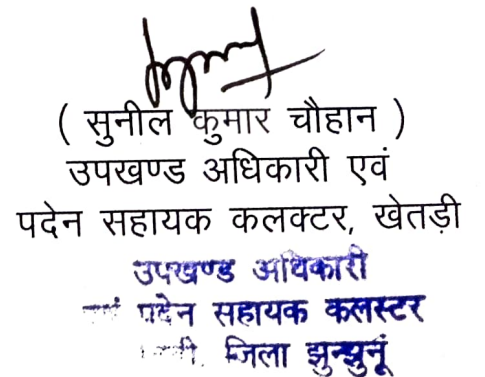 ( सुनील कुमार चौहान )
उपखण्ड अधिकारी एवं
पदेन सहायक कलक्टर, खेतड़ी
उपखण्ड अधिकारी
पदेन सहायक कलस्टर
जिला झुन्झुनूं